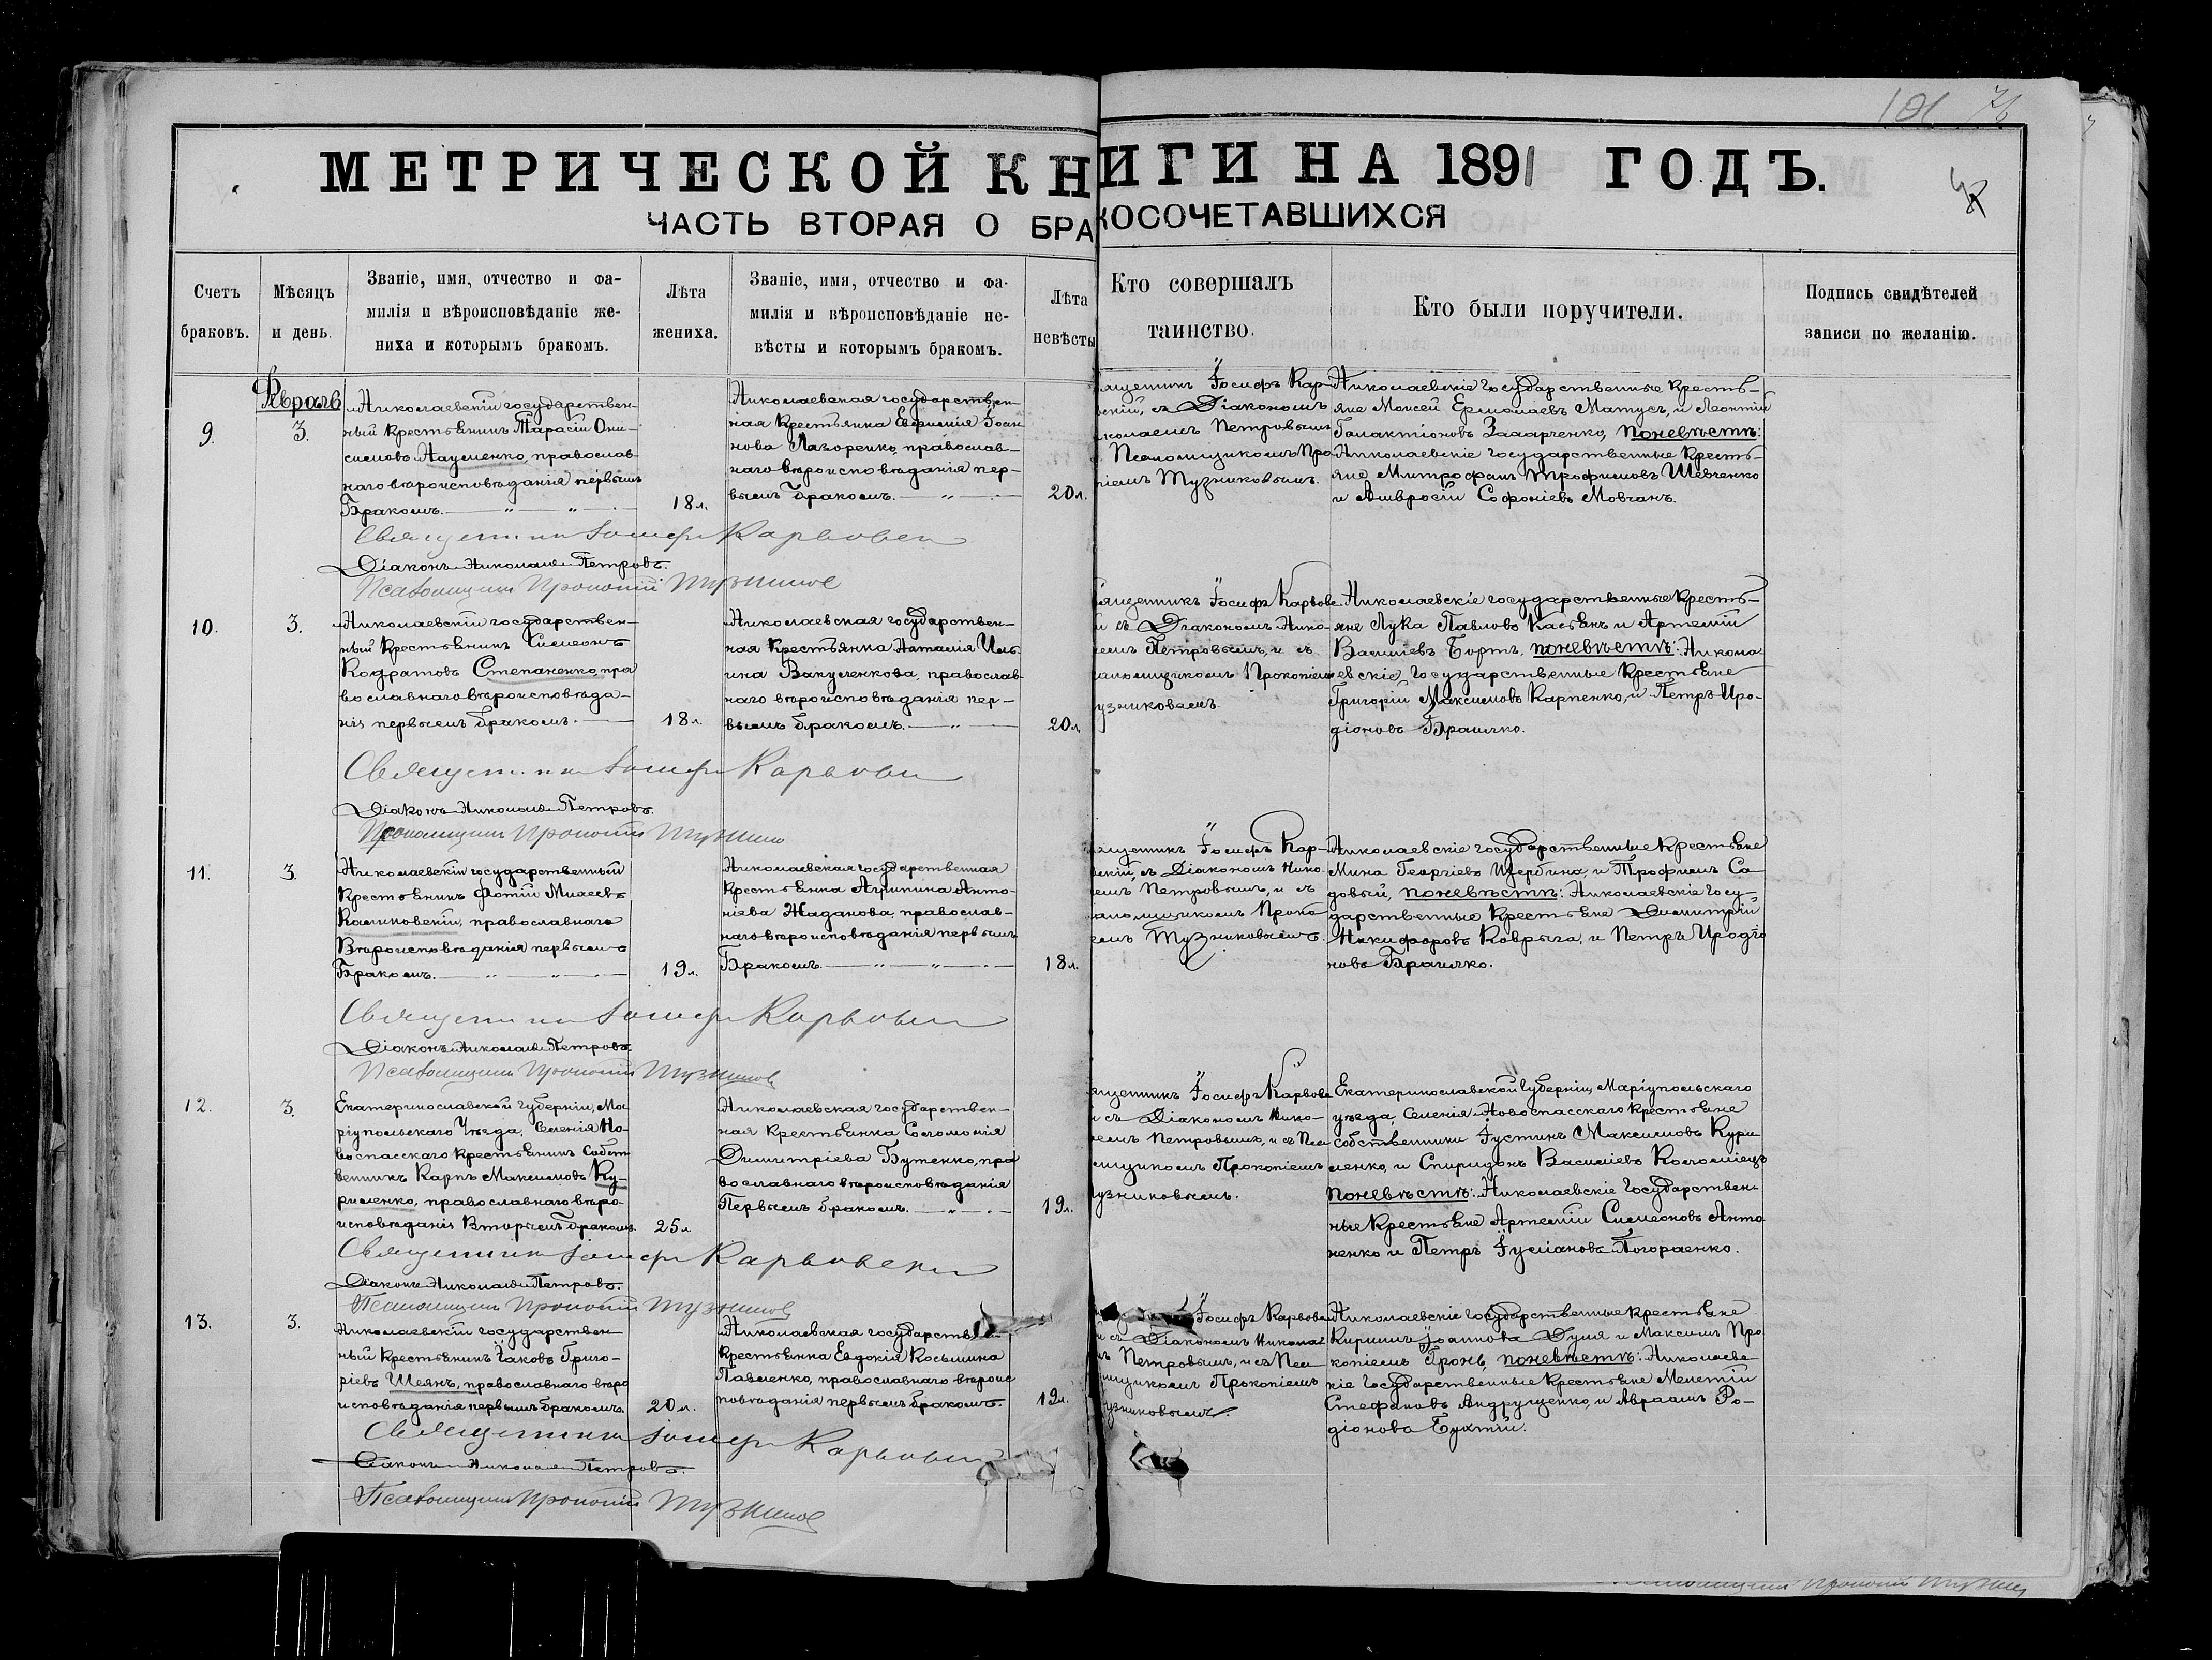 101 76
МЕТРИЧЕСКОЙ КНИГИ НА 1891 ГОДЪ.
ЧАСТЬ ВТОРАЯ О БРАКОСОЧЕТАВШИХСЯ
Счетъ
браковъ.
Мѣсяцъ
и день.
Званіе, имя, отчество и фа-
милія и вѣроисповѣданіе же-
ниха и которымъ бракомъ.
Лѣта
жениха.
Званіе, имя, отчество и фа-
милія и вѣроисповѣданіе не-
вѣсты и которымъ бракомъ.
Лѣта
невѣсты
Кто совершалъ
таинство.
Кто были поручители.
Подпись свидѣтелей
записи по желанію.
9.
Февраль
3.
Николаевскій государствен-
ный крестьянинъ Тарасій Они-
симовъ Науменко, православ-
наго вѣроисповѣданія первымъ
Бракомъ.
18 л.
Николаевская государствен-
ная крестьянка Евфимія Іоан
нова Лазоренко, православ-
наго вѣроисповѣданія пер-
вымъ Бракомъ.
20 л.
Іосифъ Кар-
скій, съ Діакономъ
Петровымъ
Псаломщикомъ Про
Тузниковымъ.
Николаевскіе государственные кресть-
яне Моисей Ермолаевъ Матусъ, и Леонтій
Галактіоновъ Захарченко, поневѣстѣ:
Николаевскіе государственные кресть-
яне Митрофанъ Трофимовъ Шевченко
и Амвросій Софоніевъ Мовчанъ.
Священникъ Іосифъ Карвовскій
Діаконъ Николай Петровъ.
Псаломщикъ Прокопій Тузниковъ
10.
3.
Николаевскій государствен-
ный крестьянинъ Симеонъ
Кодратовъ Степаненко, пра
вославнаго вѣроисповѣда-
нія первымъ бракомъ.
18 л.
Николаевская государствен-
ная крестьянка Наталія Иль-
ина Вакуленкова, православ-
наго вѣроисповѣданія пер-
вымъ бракомъ.
20 л
Іосифъ Карвовс
и съ Діакономъ Нико-
Петровымъ, и съ
Прокопіем
Николаевскіе государственные кресть-
яне Лука Павловъ Касьянъ и Артемій
Василіевъ Бортъ, поневѣстѣ: Никола-
евскіе, государственные Крестьяне
Григорій Максимовъ Карпенко, и Петръ Иро-
діоновъ Браилко.
Священникъ Іосифъ Карвовскій
Діаконъ Николай Петровъ.
Псаломщикъ Прокопій Тузниковъ
11.
3.
Николаевскій государственный
Крестьянинъ Фотій Михеевъ
Калиновскій, православнаго
Вѣроисповѣданія первымъ
Бракомъ.
19 л.
Николаевская государственная
Крестьянка Агрипина Анто-
ніева Жаданова, православ-
наго вѣроисповѣданія первымъ
Бракомъ.
18 л.
Іосифъ Кар-
съ Діакономъ Нико-
Петровымъ, и съ
Проко
Тузниковымъ.
Николаевскіе государственные Крестьяне
Мина Георгіевъ Щербина, и Трофимъ Са-
довый, поневѣстѣ: Николаевскіе госу-
дарственные Крестьяне Димитрій
Никифоровъ Коврыга, и Петръ Иродіо
новъ Браилко.
Священникъ Іосифъ Карвовскій
Діаконъ Николай Петровъ.
Псаломщикъ Прокопій Тузниковъ
12.
3.
Екатеринославской губерніи, Ма-
ріупольскаго Уѣзда, Селенія Но-
воспасскаго крестьянинъ Собст-
венникъ Карпъ Максимовъ Ку-
риленко, православнаго вѣро-
исповѣданія Вторымъ бракомъ.
25 л
Николаевская государствен-
ная крестьянка Соломонія
Димитріева Бутенко, пра
вославнаго вѣроисповѣданія
Первымъ бракомъ.
19 л.
Іосифъ Карвовс
и съ Діакономъ Нико-
Петровымъ, и съ Пса
Прокопіемъ
Екатеринославской губерніи, Маріупольскаго
уѣзда, Селенія Новоспасскаго крестьяне
собственники Іустинъ Максимовъ Кури-
ленко, и Спиридонъ Василіевъ Коломіецъ
поневѣстѣ: Николаевскіе Государствен-
ные Крестьяне Артемій Симеоновъ Анто
ненко и Петръ Погораенко.
Священникъ Іосифъ Карвовскій
Діаконъ Николай Петровъ.
Псаломщикъ Прокопій Тузниковъ
13.
3.
Николаевскій государствен-
ный крестьянинъ Іаковъ Григо-
ріевъ Шеянъ, православнаго вѣро
исповѣданія первымъ бракомъ.
20 л.
Николаевская государств
крестьянка Евдокія Косьмина
Павленко, православнаго вѣроис
повѣданія первымъ бракомъ.
19 л.
Іосифъ Карвовс
и съ Діакономъ Никола
Петровымъ, и съ Пса-
Прокопіемъ
Николаевскіе государственные крестьяне
Кириллъ Іоанновъ Дуля и Максимъ Про
копіевъ Гронь, поневѣстѣ: Николаевс-
кіе государственные крестьяне Мелетій
Стефановъ Андрущенко, и Авраамъ Ро-
діоновъ Бухтій.
Священникъ Іосифъ Карвовскій
Діаконъ Николай Петровъ.
Псаломщикъ Прокопій Тузниковъ